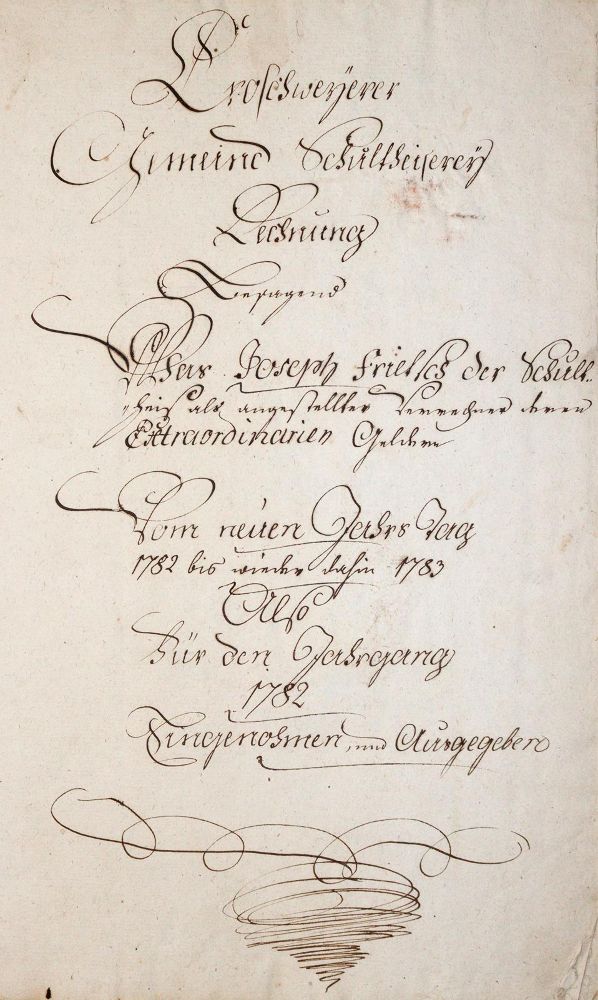 Croschweyerer
Gemeind Schultheiserey
Rechnung
Besagend
Was Joseph Frietsch der Schult„
heis als angestellter Verrechner deren
Extraordinarien Geldern
Vom neuen Jahrs Tag
1782 bis wieder dahin 1783
Also
Für den Jahrgang
1782
Eingenohmen, und Ausgegeben